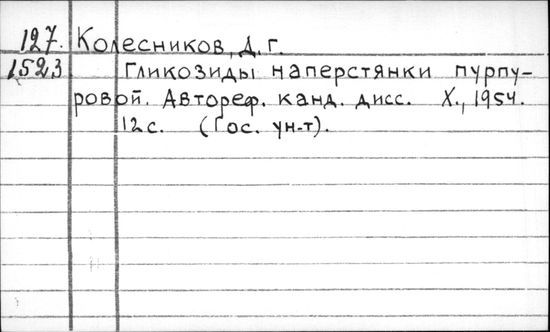 127. Колесников, Д. Г.
1523 Гликозиды наперстянки пурпу-
ровой. Автореф. канд. дисс. Х., 1954.
12 с. (Гос. ун-т).